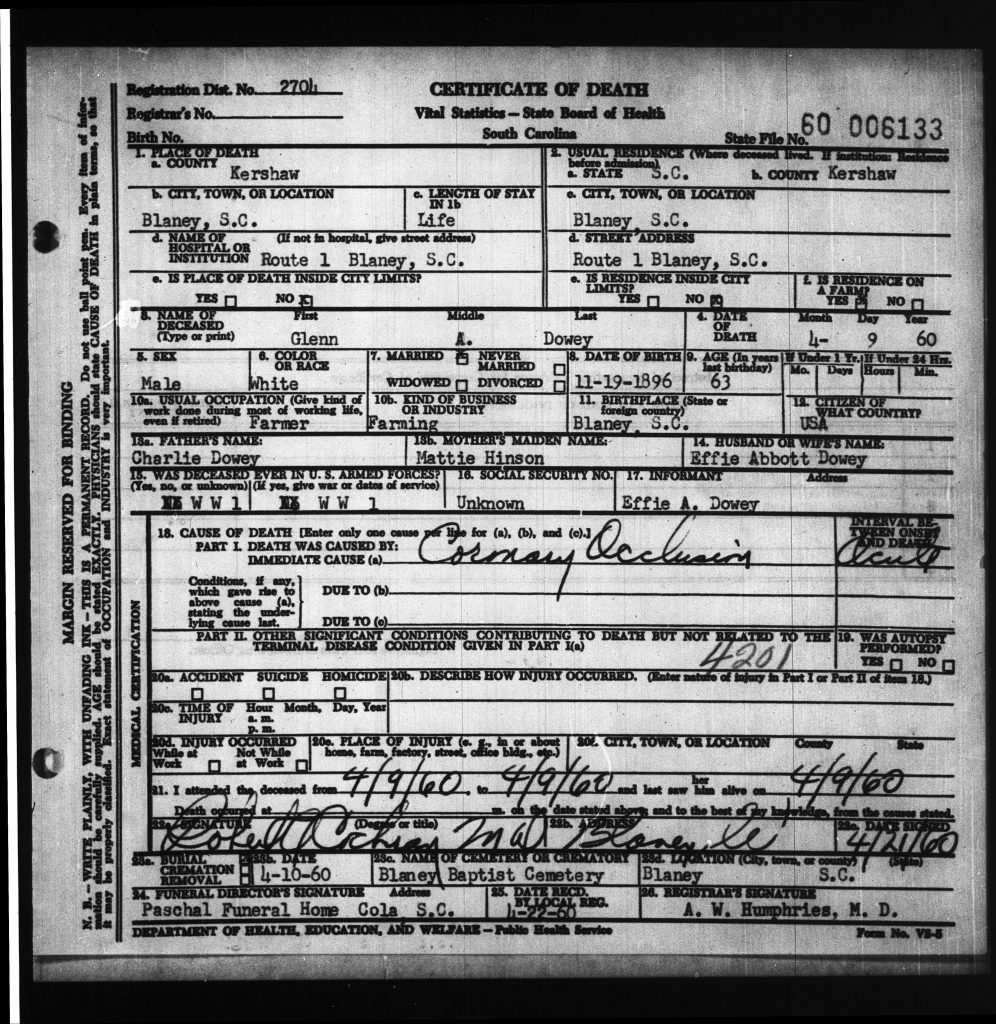 Registration Dist. No. 2704
CERTIFICATE OF DEATH
Registrar's No.
Vital Statistics — State Board of Health
Birth No.
South Carolina
State File No. 60 006133
1. PLACE OF DEATH
a. COUNTY
Kershaw
2. USUAL RESIDENCE (Where deceased lived. If institution: Residence before admission)
a. STATE S.C. b. COUNTY Kershaw
b. CITY, TOWN, OR LOCATION
Blaney, S.C.
c. LENGTH OF STAY IN 1b
Life
c. CITY, TOWN, OR LOCATION
Blaney, S.C.
d. NAME OF HOSPITAL OR INSTITUTION (If not in hospital, give street address)
Route 1 Blaney, S.C.
d. STREET ADDRESS
Route 1 Blaney, S.C.
e. IS PLACE OF DEATH INSIDE CITY LIMITS?
YES NO X
e. IS RESIDENCE INSIDE CITY LIMITS?
YES NO X
f. IS RESIDENCE ON A FARM?
YES X NO
3. NAME OF DECEASED (Type or print)
First Middle Last
Glenn A. Dowey
4. DATE OF DEATH
Month Day Year
4- 9 60
5. SEX
Male
6. COLOR OR RACE
White
7. MARRIED X NEVER MARRIED
WIDOWED DIVORCED
8. DATE OF BIRTH
11-19-1896
9. AGE (In years last birthday)
63
If Under 1 Yr. If Under 24 Hrs.
Mo. Days Hours Min.
10a. USUAL OCCUPATION (Give kind of work done during most of working life, even if retired)
Farmer
10b. KIND OF BUSINESS OR INDUSTRY
Farming
11. BIRTHPLACE (State or foreign country)
Blaney, S.C.
12. CITIZEN OF WHAT COUNTRY?
USA
13a. FATHER'S NAME:
Charlie Dowey
13b. MOTHER'S MAIDEN NAME:
Mattie Hinson
14. HUSBAND OR WIFE'S NAME:
Effie Abbott Dowey
15. WAS DECEASED EVER IN U. S. ARMED FORCES?
(Yes, no, or unknown) (If yes, give war or dates of service)
W W 1 W W 1
16. SOCIAL SECURITY NO.
Unknown
17. INFORMANT Address
Effie A. Dowey
18. CAUSE OF DEATH [Enter only one cause per line for (a), (b), and (c).]
PART I. DEATH WAS CAUSED BY:
IMMEDIATE CAUSE (a) Coronary Occlusion
INTERVAL BETWEEN ONSET AND DEATH
Acute
Conditions, if any, which gave rise to above cause (a), stating the underlying cause last.
DUE TO (b)
DUE TO (c)
PART II. OTHER SIGNIFICANT CONDITIONS CONTRIBUTING TO DEATH BUT NOT RELATED TO THE TERMINAL DISEASE CONDITION GIVEN IN PART I(a)
4201
19. WAS AUTOPSY PERFORMED?
YES NO
20a. ACCIDENT SUICIDE HOMICIDE
20b. DESCRIBE HOW INJURY OCCURRED. (Enter nature of injury in Part I or Part II of item 18.)
20c. TIME OF INJURY Hour Month, Day, Year
a. m.
p. m.
20d. INJURY OCCURRED
While at Work Not While at Work
20e. PLACE OF INJURY (e. g., in or about home, farm, factory, street, office bldg., etc.)
20f. CITY, TOWN, OR LOCATION County State
21. I attended the deceased from 4/9/60, to 4/9/60 and last saw her him alive on 4/9/60
Death occurred at m. on the date stated above; and to the best of my knowledge, from the causes stated.
22a. SIGNATURE (Degree or title)
Robert Cochran M.D.
22b. ADDRESS
Blaney, SC
22c. DATE SIGNED
4/21/60
23a. BURIAL X
CREMATION
REMOVAL
23b. DATE
4-10-60
23c. NAME OF CEMETERY OR CREMATORY
Blaney Baptist Cemetery
23d. LOCATION (City, town, or county) (State)
Blaney S.C.
24. FUNERAL DIRECTOR'S SIGNATURE Address
Paschal Funeral Home Cola S.C.
25. DATE RECD. BY LOCAL REG.
4-22-60
26. REGISTRAR'S SIGNATURE
A. W. Humphries, M. D.
DEPARTMENT OF HEALTH, EDUCATION, AND WELFARE — Public Health Service
Form No. VS-5
MARGIN RESERVED FOR BINDING
N. B. — WRITE PLAINLY, WITH UNFADING INK — THIS IS A PERMANENT RECORD. Do not use ball point pen. Every item of information should be carefully supplied. AGE should be stated EXACTLY. PHYSICIANS should state CAUSE OF DEATH in plain terms, so that it may be properly classified. Exact statement of OCCUPATION and INDUSTRY is very important.
MEDICAL CERTIFICATION